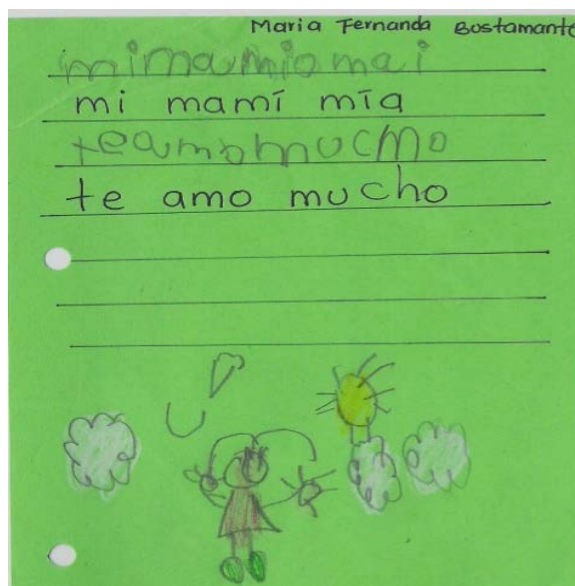 Maria Fernanda Bustamante
mimamiomai
mi mamí mía
teamomucmo
te amo mucho